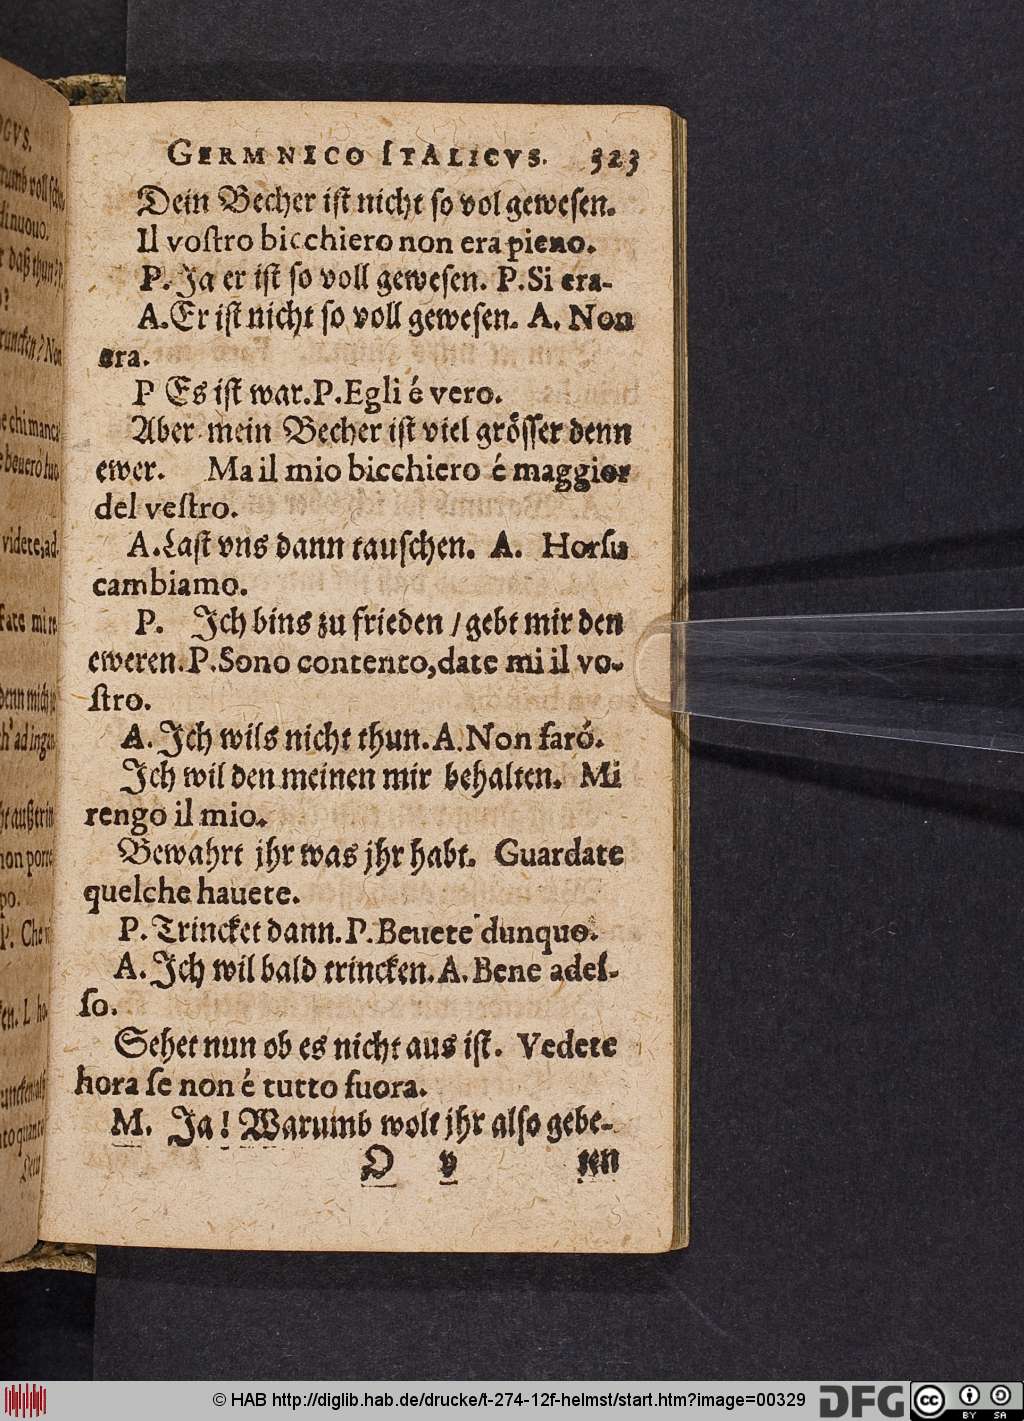 GERMNICO ITALICVS. 323
Dein Becher ist nicht so vol gewesen.
Il vostro bicchiero non era pieno.
P. Ja er ist so voll gewesen. P. Si era-
A. Er ist nicht so voll gewesen. A. Non
era.
P Es ist war. P. Egli é vero.
Aber mein Becher ist viel grösser denn
ewer. Ma il mio bicchiero é maggior
del vestro.
A. Last vns dann tauschen. A. Horsu
cambiamo.
P. Ich bins zu frieden / gebt mir den
eweren. P. Sono contento, date mi il vo-
stro.
A. Ich wils nicht thun. A. Non faró.
Ich wil den meinen mir behalten. Mi
rengo il mio.
Bewahrt jhr was jhr habt. Guardate
quelche hauete.
P. Trincket dann. P. Beuete dunquo.
A. Ich wil bald trincken. A. Bene ades-
so.
Sehet nun ob es nicht aus ist. Vedete
hora se non é tutto fuora.
M. Ja! Warumb wolt jhr also gebe-
O v ten
videte, ad
Fate mi re
ch' ad ingan
non porre
P. Che vi
© HAB http://diglib.hab.de/drucke/t-274-12f-helmst/start.htm?image=00329
DFG
cc BY SA